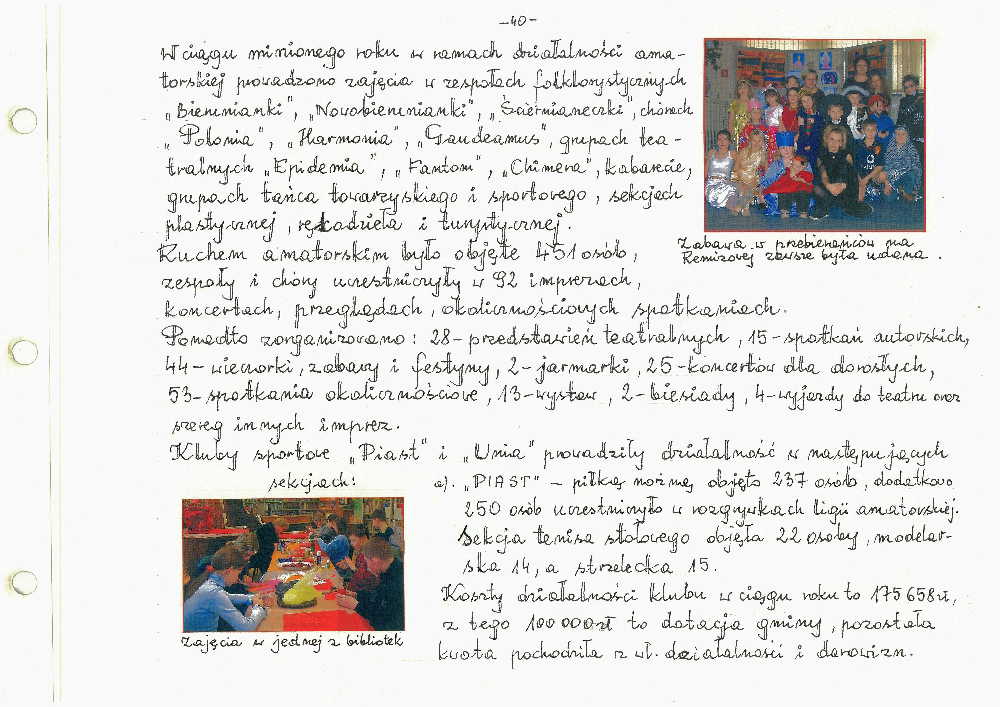 -40-
W ciągu minionego roku w ramach działalności ama-
torskiej prowadzono zajęcia w zespołach folklorystycznych
„Bierunianki", „Nowobierunianki", „Ścierniameczki", chórach
„Polonia", „Harmonia", „Gaudeamus", grupach tea-
tralnych „Epidemia", „Fantom", „Chimera", kabarecie,
grupach tańca towarzyskiego i sportowego, sekcjach
plastycznej, rękodzieła i turystycznej.
Zabawa w przebierańców na
Remizowej zawsze była udana.
Ruchem amatorskim było objęte 451 osób,
zespoły i chóry uczestniczyły w 92 imprezach,
koncertach, przeglądach, okolicznościowych spotkaniach.
Ponadto zorganizowano: 28-przedstawień teatralnych, 15-spotkań autorskich,
44-wieczorki, zabawy i festyny, 2-jarmarki, 25-koncertów dla dorosłych,
53-spotkania okolicznościowe, 13-wystaw, 2-biesiady, 4-wyjazdy do teatru oraz
szereg innych imprez.
Kluby sportowe „Piast" i „Unia" prowadziły działalność w następujących
sekcjach:
a). „PIAST" - piłką nożną objęto 237 osób, dodatkowo
250 osób uczestniczyło w rozgrywkach ligii amatorskiej.
Sekcja tenisa stołowego objęła 22 osoby, modelar-
ska 14, a strzelecka 15.
Koszty działalności klubu w ciągu roku to 175 658 zł,
z tego 100 000 zł to dotacja gminy, pozostała
kwota pochodziła z wł. działalności i darowizn.
Zajęcia w jednej z bibliotek